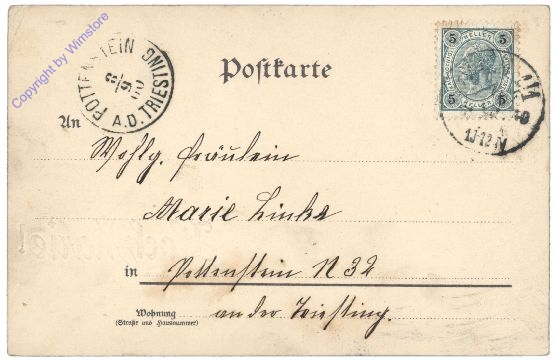 Copyright by Wimstore
POTTENSTEIN A.D.TRIESTING
8/9 00
Postkarte
5 HELLER 5
5 5
An
Wohlg. Fräulein
Marie Linke
in Pottenstein N 32
Wohnung
(Straße und Hausnummer)
an der Triesting.